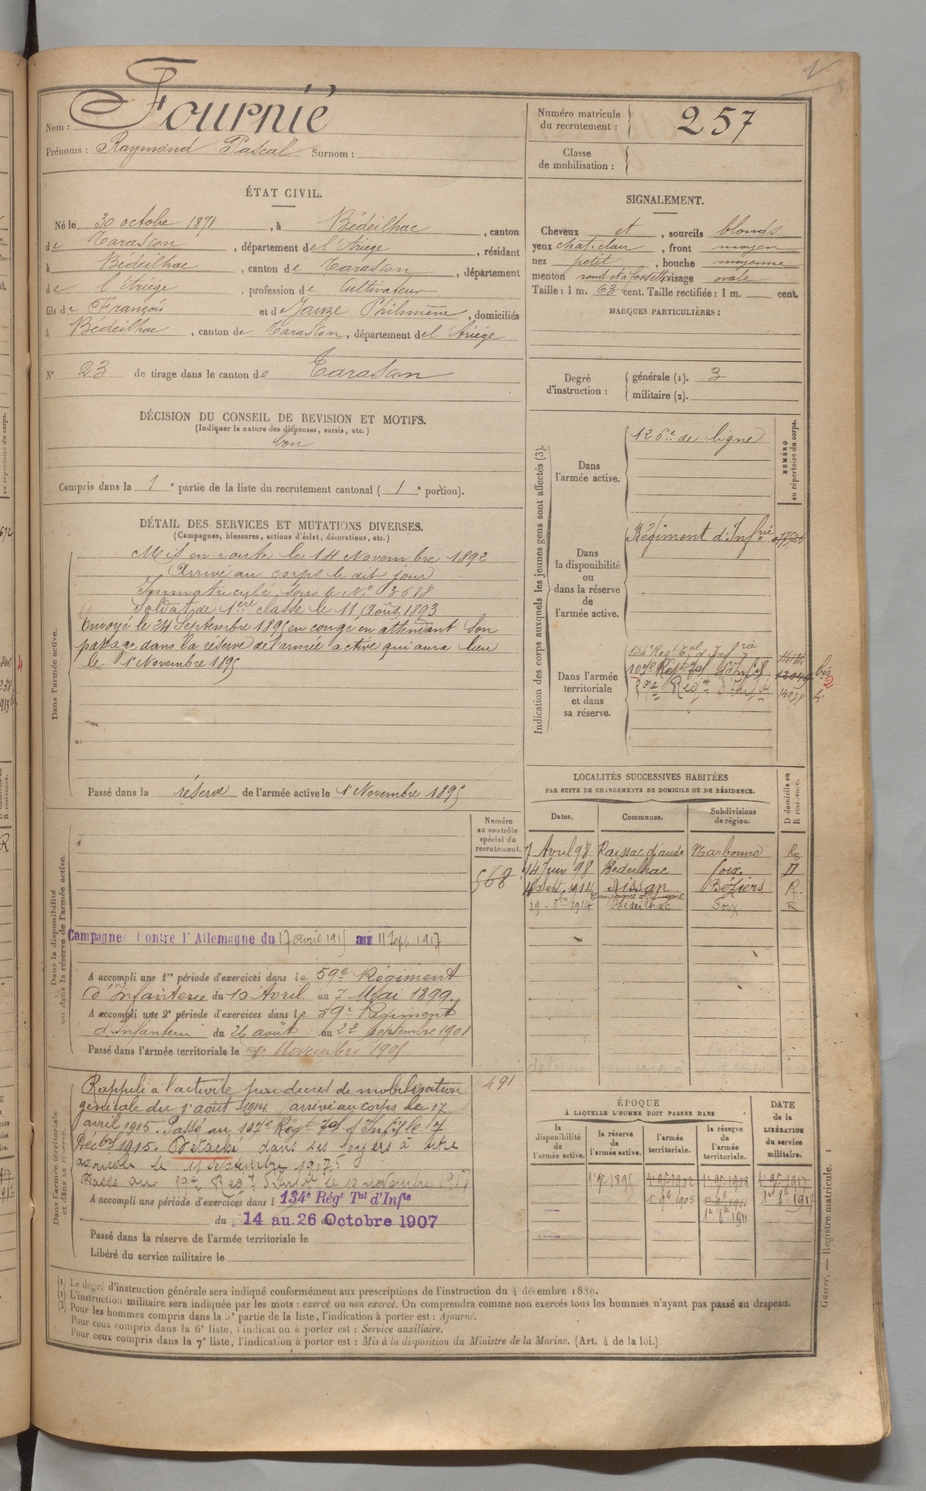 Nom : Fournié
Prénoms : Raymond Pascal Surnom :
Numéro matricule du recrutement : 257
Classe de mobilisation :
ÉTAT CIVIL.
Né le 30 octobre 1871, à Bédeilhac, canton
de Tarascon, département de l'Ariège, résidant
à Bédeilhac, canton de Tarascon, département
de l'Ariège, profession de Cultivateur
fils de François et de Jauze Philomène, domiciliés
à Bédeilhac, canton de Tarascon, département de l'Ariège
N° 23 de tirage dans le canton de Tarascon
SIGNALEMENT.
Cheveux et, sourcils blonds
yeux chat. clair, front moyen
nez petit, bouche moyenne
menton rond et à fossette visage ovale
Taille : 1 m. 63 cent. Taille rectifiée : 1 m. cent.
MARQUES PARTICULIÈRES :
Degré d'instruction : générale (1). 3
militaire (2).
DÉCISION DU CONSEIL DE REVISION ET MOTIFS.
(Indiquer la nature des dispenses, sursis, etc.)
bon
Compris dans la 1e partie de la liste du recrutement cantonal (1e portion).
DÉTAIL DES SERVICES ET MUTATIONS DIVERSES.
(Campagnes, blessures, actions d'éclat, décorations, etc.)
Dans l'armée active.
Mis en route le 14 Novembre 1892
Arrivé au corps le dit jour
Immatriculé sous le N° 3678
Soldat de 1ere classe le 11 Août 1893
Envoyé le 24 Septembre 1895 en congé en attendant son
passage dans la réserve de l'armée active qui aura lieu
le 1e Novembre 1895
Passé dans la réserve de l'armée active le 1e Novembre 1895
Indication des corps auxquels les jeunes gens sont affectés (3).
NUMÉRO au répertoire du corps.
Dans l'armée active. 126e de ligne
Dans la disponibilité ou dans la réserve de l'armée active. Régiment d'Infrie
Dans l'armée territoriale et dans sa réserve.
134e Régt Tal d'Infrie
107e Régt Tal d'Inf
bis
LOCALITÉS SUCCESSIVES HABITÉES
PAR SUITE DE CHANGEMENTS DE DOMICILE OU DE RÉSIDENCE.
Dates. Communes. Subdivisions de région. D domicile ou R résidence.
7 Avril 98 Raissac d'aude Narbonne R
14 Juin 98 Bédeilhac Foix D
1914 Nissan Béziers R
19 1914 Bédeilhac Foix R
Dans la disponibilité ou dans la réserve de l'armée active.
Numéro au contrôle spécial du recrutement.
568
Campagne contre l'Allemagne du 17 avril 1915 au 11 Sept. 1917
A accompli une 1re période d'exercices dans le 59e Régiment
d'Infanterie du 10 Avril au 7 Mai 1899.
A accompli une 2e période d'exercices dans le 59e Régiment
d'Infanterie du 26 août au 22 septembre 1901
Passé dans l'armée territoriale le 1e Novembre 1905
Dans l'armée territoriale et dans sa réserve.
491
Rappelé à l'activité par décret de mobilisation
générale du 1er août 1914 arrivé au corps le 17
avril 1915. Passé au 107e Régt Tal d'Inf le 7
Décbre 1915. Détaché dans ses foyers à titre
le 11 Septembre 1917.
Passé au Régt d'Infie le 12 novembre 1917
A accompli une période d'exercices dans l 134e Régt Tal d'Infie
du 14 au 26 Octobre 1907
Passé dans la réserve de l'armée territoriale le
Libéré du service militaire le
ÉPOQUE
À LAQUELLE L'HOMME DOIT PASSER DANS
la disponibilité de l'armée active. la réserve de l'armée active. l'armée territoriale. la réserve de l'armée territoriale.
DATE de la LIBÉRATION du service militaire.
(1) Le degré d'instruction générale sera indiqué conformément aux prescriptions de l'instruction du 4 décembre 1889.
(2) L'instruction militaire sera indiquée par les mots : exercé ou non exercé. On comprendra comme non exercés tous les hommes n'ayant pas passé au drapeau.
(3) Pour les hommes compris dans la 5e partie de la liste, l'indication à porter est : Ajourné.
Pour ceux compris dans la 6e liste, l'indication à porter est : Service auxiliaire.
Pour ceux compris dans la 7e liste, l'indication à porter est : Mis à la disposition du Ministre de la Marine. (Art. 4 de la loi.)
Guerre. — Registre matricule. 1